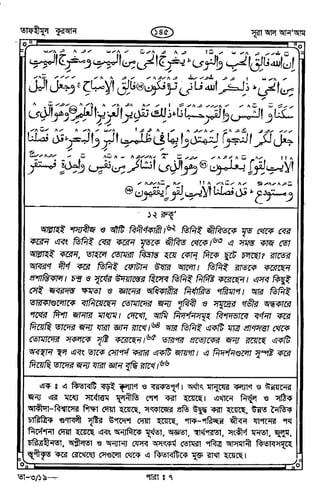 তাফহীমুল কুরআন ১৪৫ সূরা আল আন'আম
إِنَّ اللهَ فَالِقُ الْحَبِّ وَالنَّوَى يُخْرِجُ الْحَيَّ مِنَ الْمَيِّتِ وَمُخْرِجُ الْمَيِّتِ
مِنَ الْحَيِّ ذَلِكُمُ اللهُ فَأَنَّى تُؤْفَكُونَ فَالِقُ الْإِصْبَاحِ وَجَعَلَ الَّيْلَ
سَكَنًا وَّالشَّمْسَ وَالْقَمَرَ حُسْبَانًا ذَلِكَ تَقْدِيرُ الْعَزِيزِ الْعَلِيمِ وَهُوَ الَّذِي
جَعَلَ لَكُمُ النُّجُومَ لِتَهْتَدُوا بِهَا فِي ظُلُمَتِ الْبَرِّ وَالْبَحْرِ قَدْ فَصَّلْنَا
الْآيَتِ لِقَوْمٍ يَّعْلَمُونَ وَهُوَ الَّذِي أَنْشَأَكُمْ مِّنْ نَّفْسٍ وَّاحِدَةٍ فَمُسْتَقَرٌّ
وَّمُسْتَوْدَعٌ قَدْ فَصَّلْنَا الْآيَتِ لِقَوْمٍ يَّفْقَهُونَ
১২ রুকূ'
আল্লাহই শস্যবীজ ও আঁটি বিদীর্ণকারী।৬২ তিনিই জীবিতকে মৃত থেকে বের
করেন এবং তিনিই বের করেন মৃতকে জীবিত থেকে।৬৩ এ সমস্ত কাজ তো
আল্লাহই করেন, তাহলে তোমরা বিভ্রান্ত হয়ে কোন্ দিকে ছুটে চলছো? রাতের
আবরণ দীর্ণ করে তিনিই ফোটান উষার আলো। তিনিই রাতকে করেছেন
প্রশান্তিকাল। চন্দ্র ও সূর্যের উদয়াস্তের হিসেব তিনিই নির্দিষ্ট করেছেন। এসব কিছুই
সেই জবরদস্ত ক্ষমতা ও জ্ঞানের অধিকারীর নির্ধারিত পরিমাপ। আর তিনিই
তারকাগুলোকে বানিয়েছেন তোমাদের জন্য পৃথিবী ও সমুদ্রের গভীর অন্ধকারে
পথের দিশা জানার মাধ্যম। দেখো, আমি নিদর্শনসমূহ বিশদভাবে বর্ণনা করে
দিয়েছি তাদের জন্য যারা জ্ঞান রাখে।৬৪ আর তিনিই একটি মাত্র প্রাণসত্তা থেকে
তোমাদের সকলকে সৃষ্টি করেছেন।৬৫ তারপর প্রত্যেকের জন্য রয়েছে একটি
অবস্থান স্থল এবং তাকে সোপর্দ করার একটি জায়গা। এ নিদর্শনগুলো সুস্পষ্ট করে
দিয়েছি তাদের জন্য যারা জ্ঞান বুদ্ধি রাখে।৬৬
এক ঃ এ কিতাবটি বড়ই কল্যাণ ও বরকতপূর্ণ। অর্থাৎ মানুষের কল্যাণ ও উন্নয়নের
জন্য এর মধ্যে সর্বোত্তম মূলনীতি পেশ করা হয়েছে। এখানে নির্ভুল ও সঠিক
আকীদা-বিশ্বাসের শিক্ষা দেয়া হয়েছে, সৎকাজের প্রতি উদ্বুদ্ধ করা হয়েছে, উন্নত নৈতিক
চারিত্রিক গুণাবলী সৃষ্টির উপদেশ দেয়া হয়েছে, পাক-পবিত্রজন জীবন যাপনের পথ
নির্দেশনা দেয়া হয়েছে এবং অন্যদিকে মূর্খতা, অজ্ঞতা, স্বার্থপরতা, সংকীর্ণ মনতা, জুলুম,
চরিত্রহীনতা, অশ্লীলতা ও অন্যান্য যেসব অসৎকর্ম তোমরা পবিত্র আসমানী কিতাবসমূহে
স্তূপীকৃত করে রেখেছো সেগুলো থেকে এ কিতাবটিকে মুক্ত রাখা হয়েছে।
তা-৩/১৯— পারা ঃ ৭